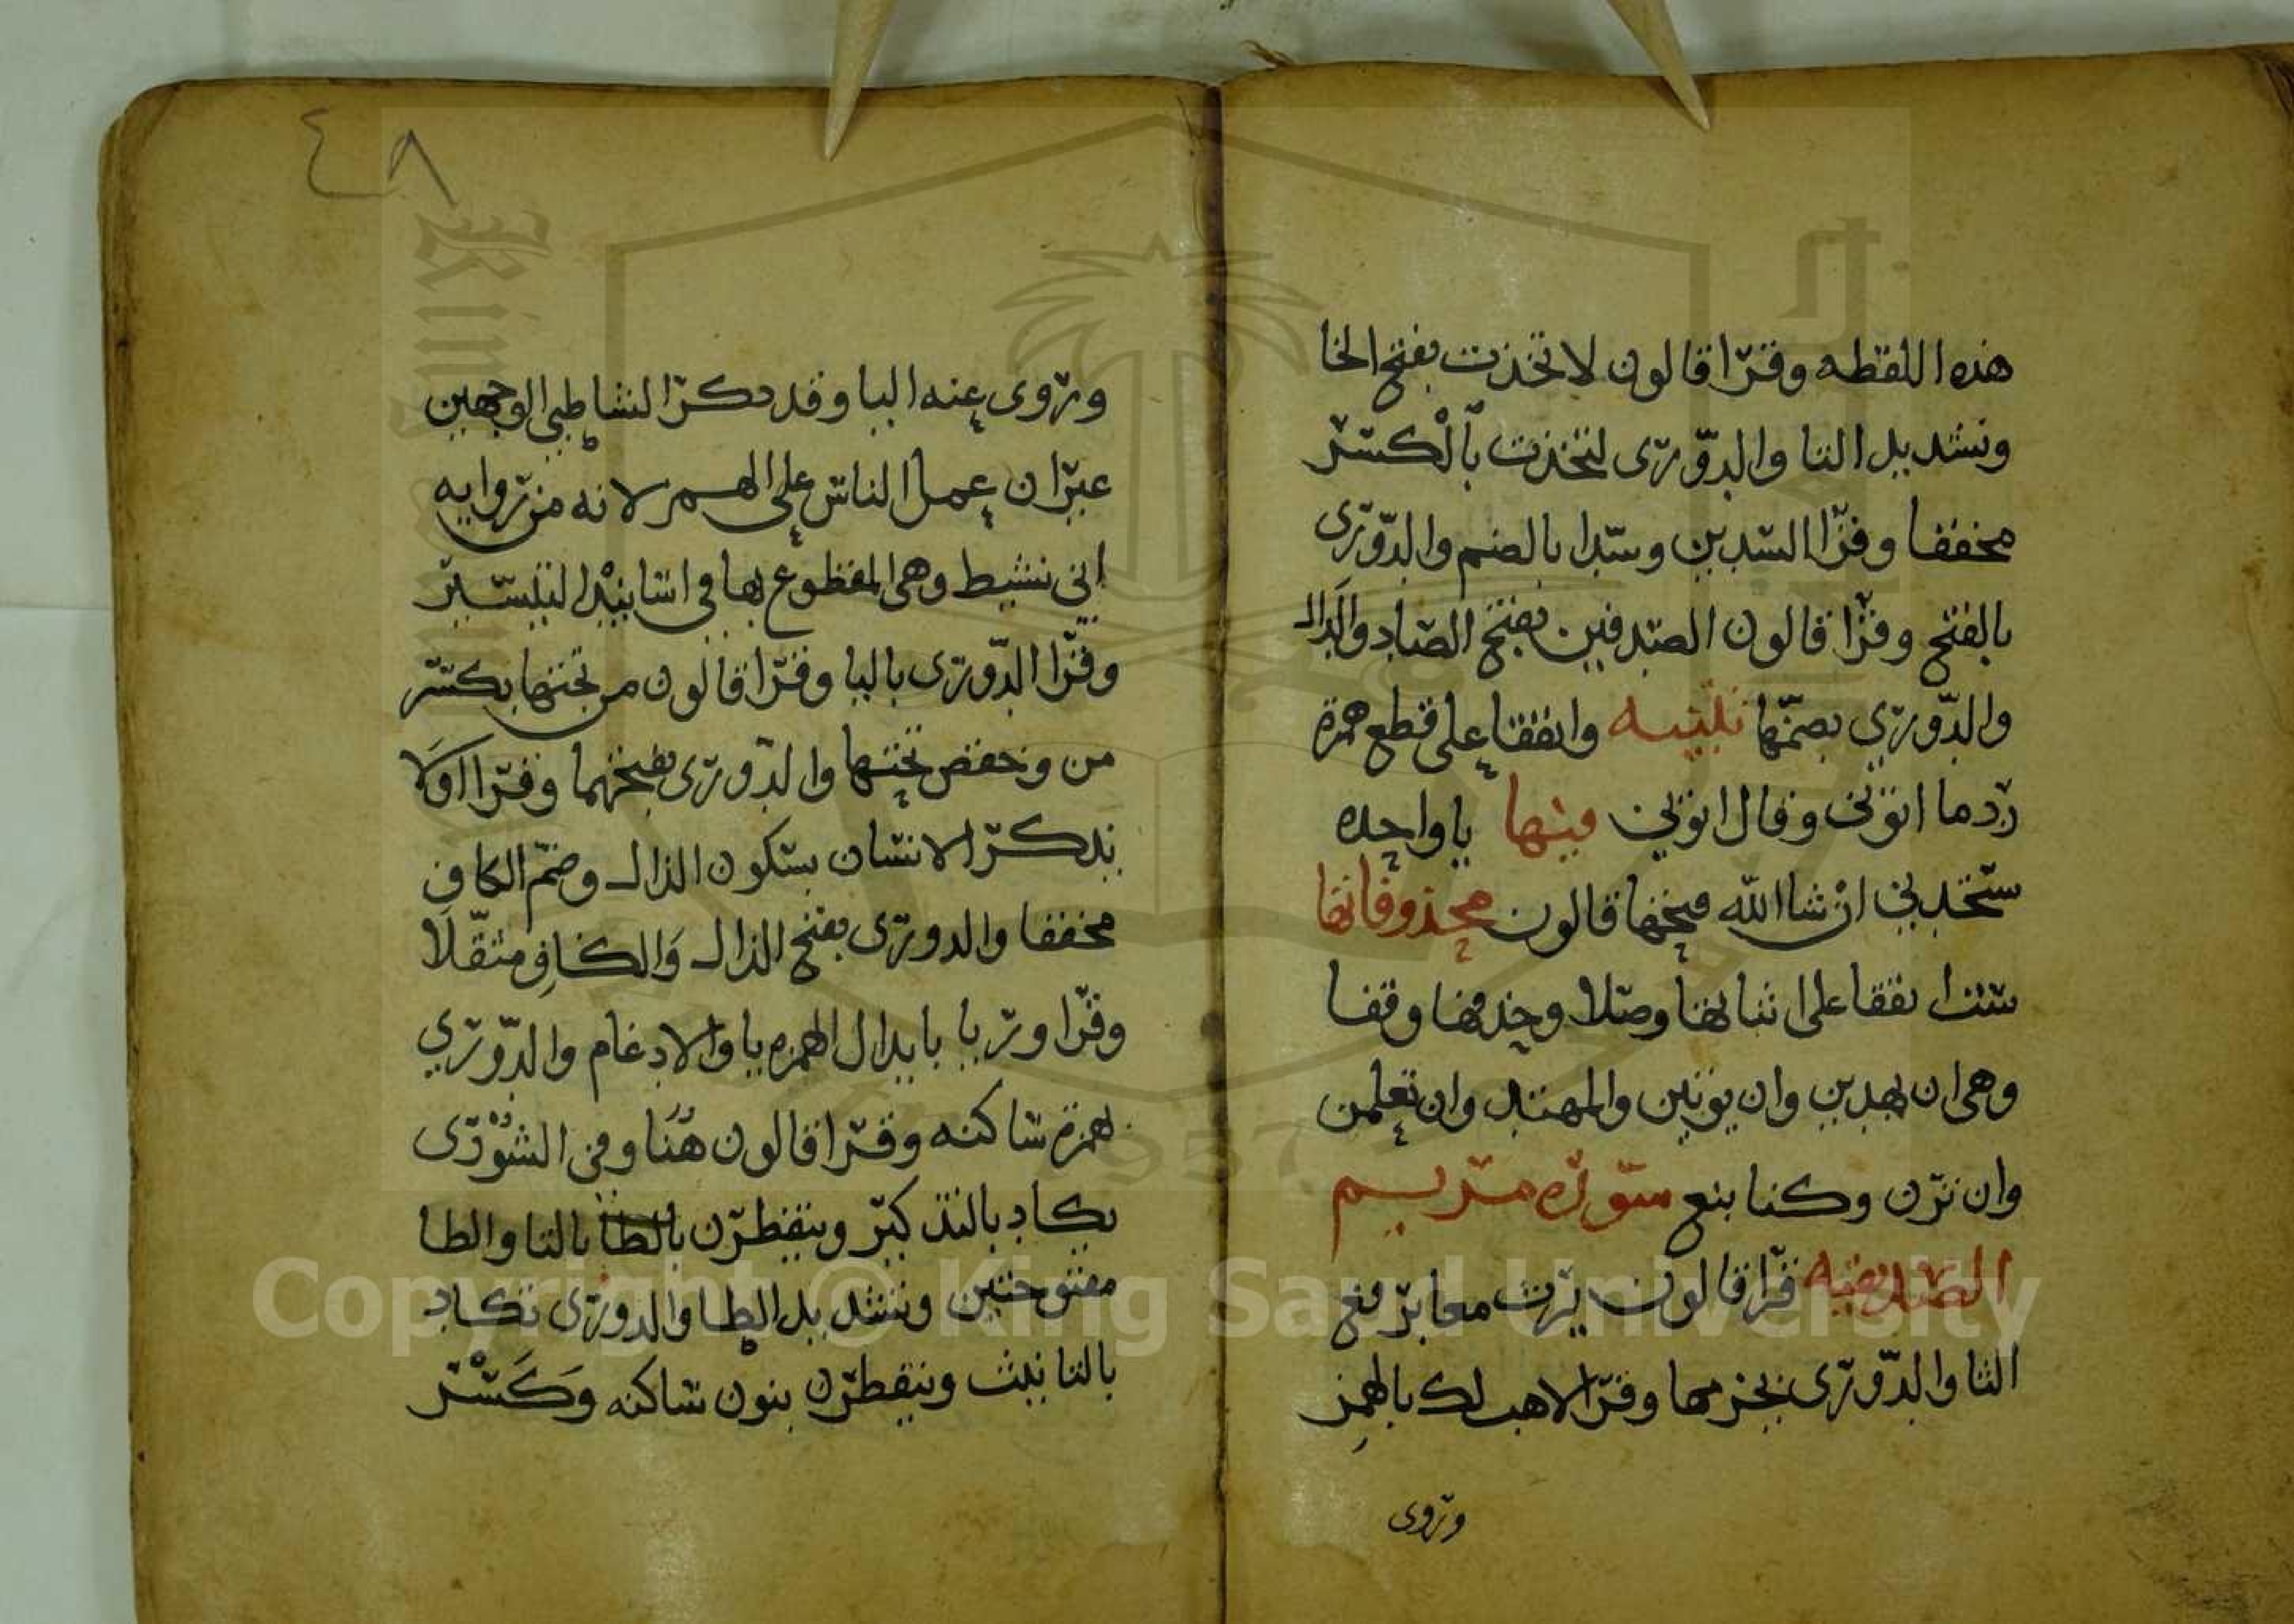 هذه اللفظه وقرا قالون لاتخذت بفتح الخا
وتشديد التا والدوري لتخذت بالكسر
مخففا وقرا السدين وسدا بالضم والدوري
بالفتح وقرا قالون الصدفين بفتح الصاد والدال
والدوري بضمها تنبيه واتفقا على قطع همزة
ردما اتوني وقال اتوني فيها يا واحده
ستجدني ان شا الله فتحها قالون محذوفاتها
ست اتفقا على اثباتها وصلا وحذفها وقفا
وهي ان يهدين وان يوتين والمهتد وان تعلمن
وان ترن وكنا نبغ سورة مريم
الصديقيه قرا قالون يرث معا برفع
الثا والدوري بجزمها وقرا لاهب لك بالهمز
وروى
٤٨
وروى عنه اليا وقد دكر الشاطبي الوجهين
غير ان عمل الناس على الهمز لانه من روايه
ابي نشيط وهي المقطوع بها في اسانيد التيسير
وقرا الدوري باليا وقرا قالون من تحتها بكسر
من وخفض تحتها والدوري بفتحهما وقرا اولا
يدكر الانسان بسكون الذال وضم الكاف
مخففا والدوري بفتح الذال والكاف مثقلا
وقرا وريا بابدال الهمزه يا والادغام والدوري
بهمزة ساكنه وقرا قالون هنا وفي الشورى
يكاد بالتذكير ويتفطرن بالطا بالتا والطا
مفتوحتين وتشديد الطا والدوري تكاد
بالتانيث وينفطرن بنون ساكنه وكسر
Copyright © King Saud University
1957